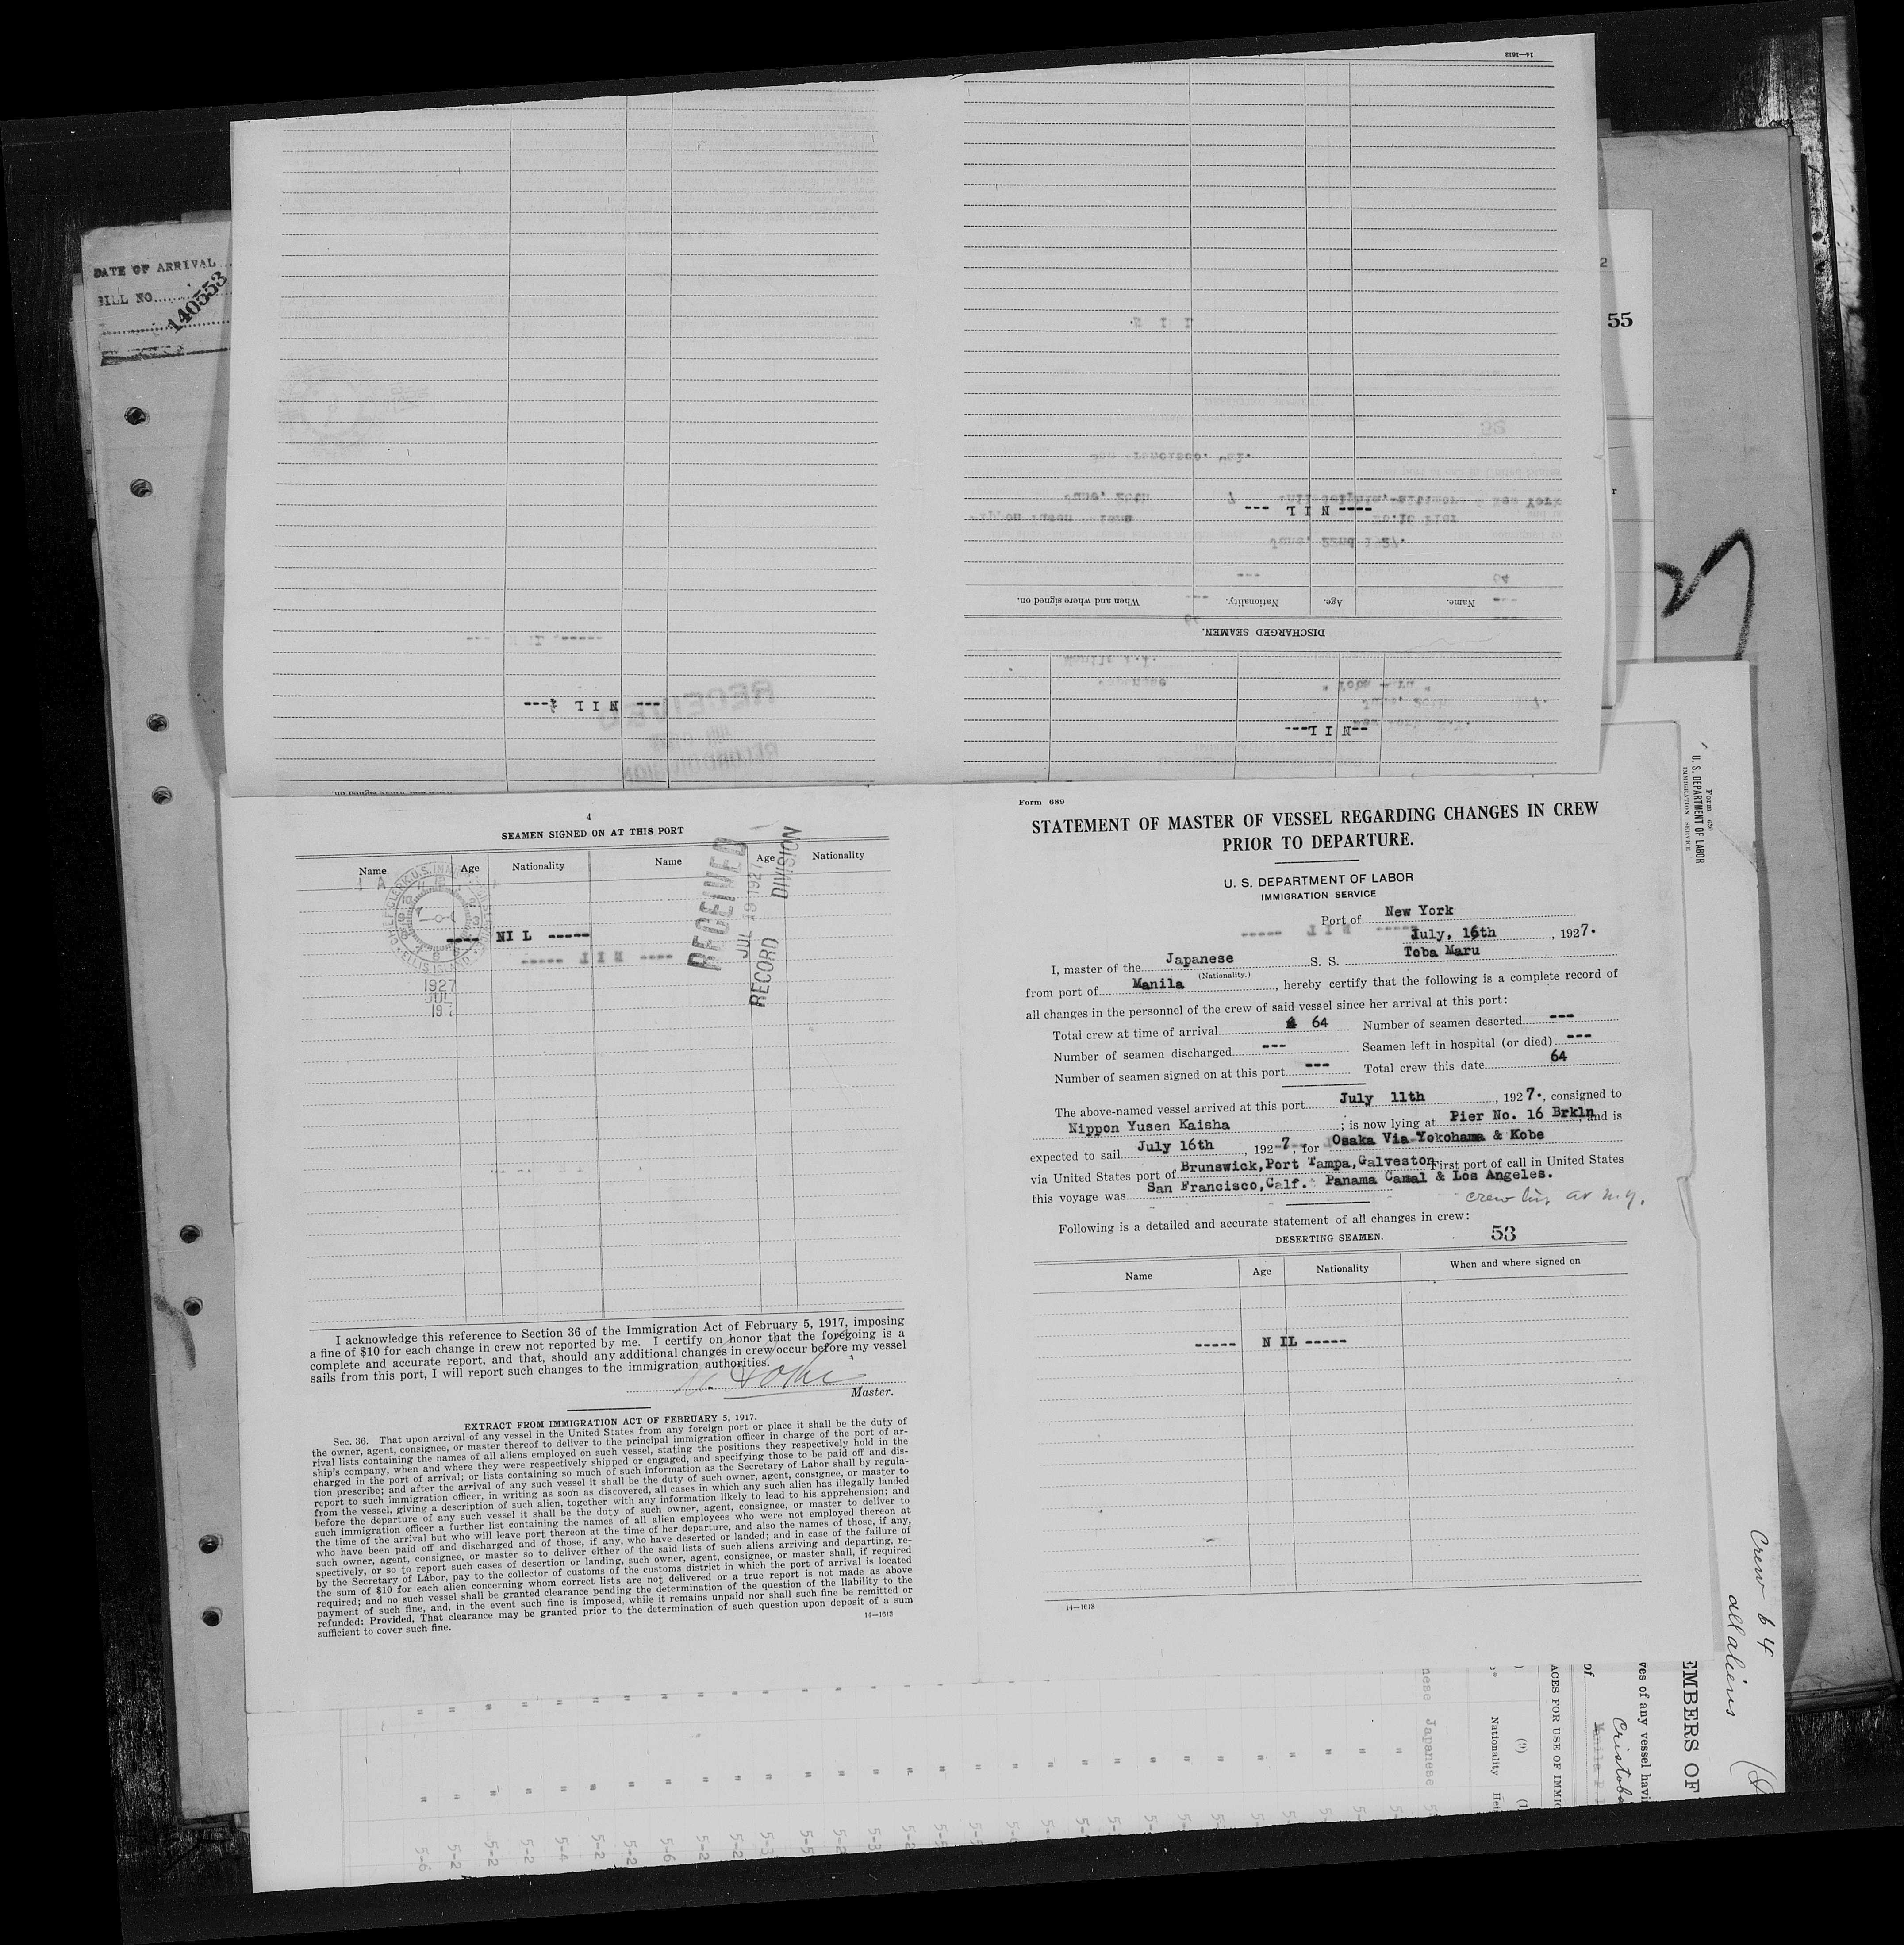 14—1613
DATE OF ARRIVAL
BILL NO.
140553
2
55
r
--- NIL ----
When and where signed on.
Nationality.
Age.
Name.
DISCHARGED SEAMEN.
--- NIL ----
--NIL---
4
SEAMEN SIGNED ON AT THIS PORT
Name Age Nationality Name Age Nationality
RECEIVED
JUL 19 1927
RECORD DIVISION
ELLIS ISLAND
1927
JUL
19
---- NIL -----
I acknowledge this reference to Section 36 of the Immigration Act of February 5, 1917, imposing
a fine of $10 for each change in crew not reported by me. I certify on honor that the foregoing is a
complete and accurate report, and that, should any additional changes in crew occur before my vessel
sails from this port, I will report such changes to the immigration authorities.
Master.
EXTRACT FROM IMMIGRATION ACT OF FEBRUARY 5, 1917.
Sec. 36. That upon arrival of any vessel in the United States from any foreign port or place it shall be the duty of
the owner, agent, consignee, or master thereof to deliver to the principal immigration officer in charge of the port of ar-
rival lists containing the names of all aliens employed on such vessel, stating the positions they respectively hold in the
ship's company, when and where they were respectively shipped or engaged, and specifying those to be paid off and dis-
charged in the port of arrival; or lists containing so much of such information as the Secretary of Labor shall by regula-
tion prescribe; and after the arrival of any such vessel it shall be the duty of such owner, agent, consignee, or master to
report to such immigration officer, in writing as soon as discovered, all cases in which any such alien has illegally landed
from the vessel, giving a description of such alien, together with any information likely to lead to his apprehension; and
before the departure of any such vessel it shall be the duty of such owner, agent, consignee, or master to deliver to
such immigration officer a further list containing the names of all alien employees who were not employed thereon at
the time of the arrival but who will leave port thereon at the time of her departure, and also the names of those, if any,
who have been paid off and discharged and of those, if any, who have deserted or landed; and in case of the failure of
such owner, agent, consignee, or master so to deliver either of the said lists of such aliens arriving and departing, re-
spectively, or so to report such cases of desertion or landing, such owner, agent, consignee, or master shall, if required
by the Secretary of Labor, pay to the collector of customs of the customs district in which the port of arrival is located
the sum of $10 for each alien concerning whom correct lists are not delivered or a true report is not made as above
required; and no such vessel shall be granted clearance pending the determination of the question of the liability to the
payment of such fine, and, in the event such fine is imposed, while it remains unpaid nor shall such fine be remitted or
refunded: Provided, That clearance may be granted prior to the determination of such question upon deposit of a sum
sufficient to cover such fine.
14—1613
Form 689
STATEMENT OF MASTER OF VESSEL REGARDING CHANGES IN CREW
PRIOR TO DEPARTURE.
U. S. DEPARTMENT OF LABOR
IMMIGRATION SERVICE
Port of New York
July, 16th, 1927.
I, master of the Japanese S. S. Toba Maru
(Nationality.)
from port of Manila, hereby certify that the following is a complete record of
all changes in the personnel of the crew of said vessel since her arrival at this port:
Total crew at time of arrival 64 Number of seamen deserted ---
Number of seamen discharged --- Seamen left in hospital (or died) ---
Number of seamen signed on at this port --- Total crew this date 64
The above-named vessel arrived at this port July 11th, 1927., consigned to
Nippon Yusen Kaisha; is now lying at Pier No. 16 Brkln, and is
expected to sail July 16th, 1927, for Osaka Via Yokohama & Kobe
via United States port of Brunswick, Port Tampa, Galveston First port of call in United States
this voyage was San Francisco, Calf. Panama Camal & Los Angeles.
Following is a detailed and accurate statement of all changes in crew:
DESERTING SEAMEN.
53
Name Age Nationality When and where signed on
----- NIL -----
14—1613
Form 689
U. S. DEPARTMENT OF LABOR
IMMIGRATION SERVICE
Crew 64
all aliens
EMBERS OF
ves of any vessel havi
of
ACES FOR USE OF IMMIG
(9)
Nationality
Japanese